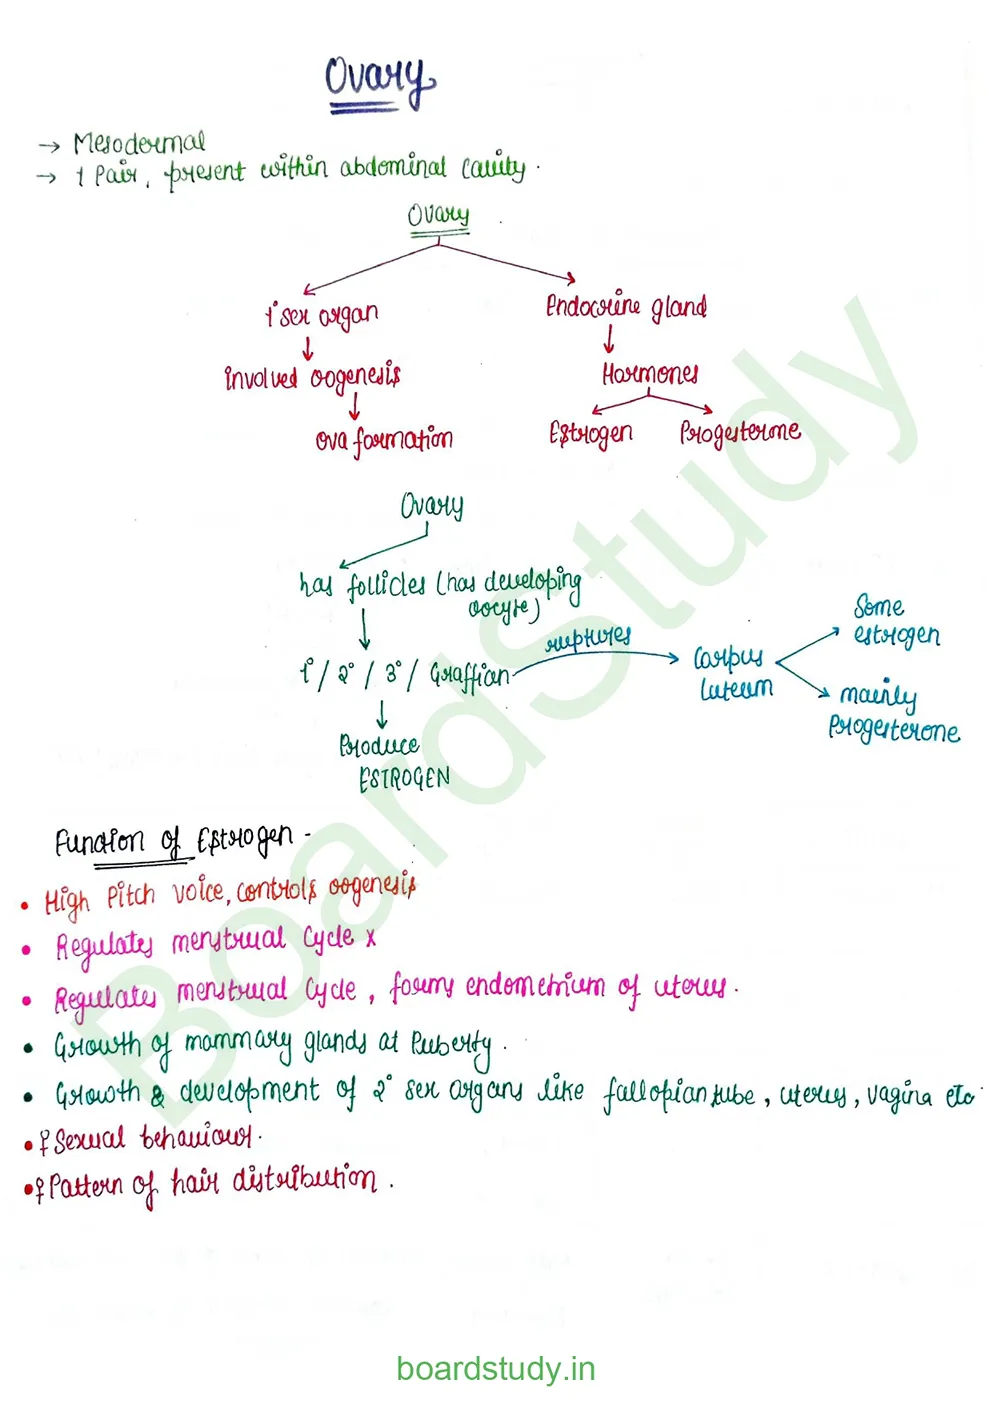 Ovary
→ Mesodermal
→ 1 Pair, present within abdominal cavity.
Ovary
1° sex organ
Endocrine gland
involved oogenesis
Hormones
ova formation
Estrogen
Progesterone
Ovary
has follicles (has developing
oocyte)
1° / 2° / 3° / Graffian
ruptures
Corpus
luteum
Some
estrogen
mainly
Progesterone
Produce
ESTROGEN
Function of Estrogen -
• High Pitch voice, controls oogenesis
• Regulates menstrual Cycle x
• Regulates menstrual Cycle, forms endometrium of uterus.
• Growth of mammary glands at Puberty.
• Growth & development of 2° sex organs like fallopian tube, uterus, vagina etc.
• ♀ Sexual behaviour.
• ♀ Pattern of hair distribution.
BoardStudy
boardstudy.in